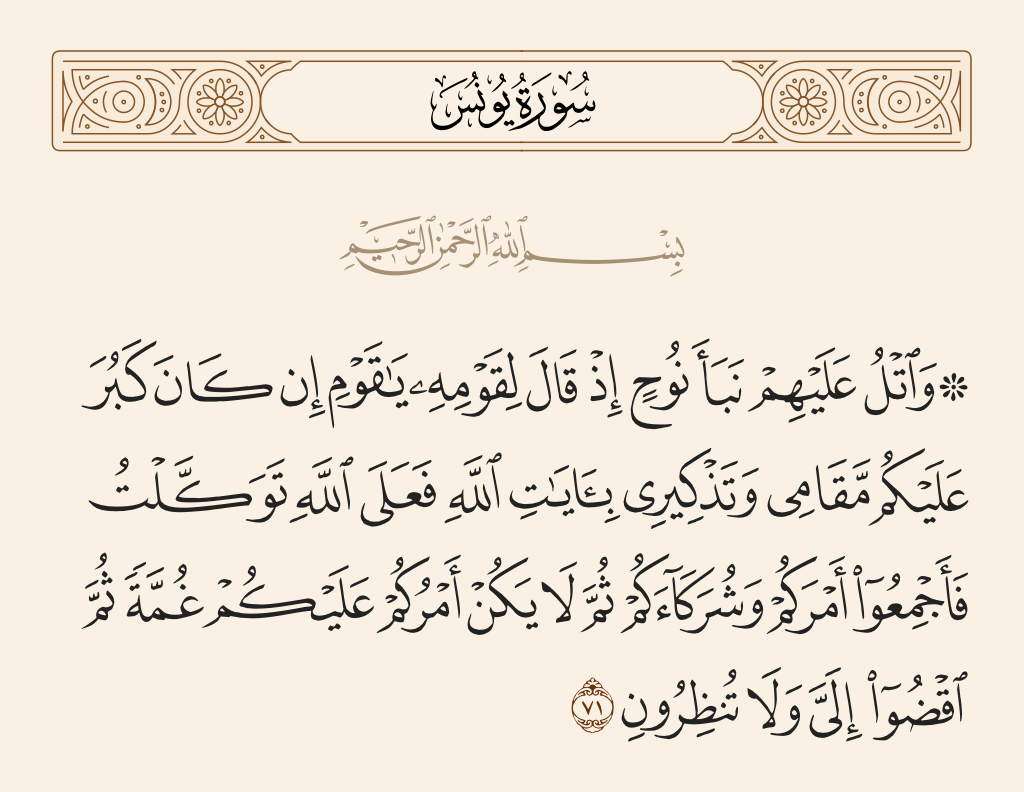 سُورَةُ يُونُسَ
بِسْمِ ٱللَّهِ ٱلرَّحْمَٰنِ ٱلرَّحِيمِ
۞ وَٱتْلُ عَلَيْهِمْ نَبَأَ نُوحٍ إِذْ قَالَ لِقَوْمِهِۦ يَٰقَوْمِ إِن كَانَ كَبُرَ
عَلَيْكُم مَّقَامِى وَتَذْكِيرِى بِـَٔايَٰتِ ٱللَّهِ فَعَلَى ٱللَّهِ تَوَكَّلْتُ
فَأَجْمِعُوٓا۟ أَمْرَكُمْ وَشُرَكَآءَكُمْ ثُمَّ لَا يَكُنْ أَمْرُكُمْ عَلَيْكُمْ غُمَّةً ثُمَّ
ٱقْضُوٓا۟ إِلَىَّ وَلَا تُنظِرُونِ ٧١